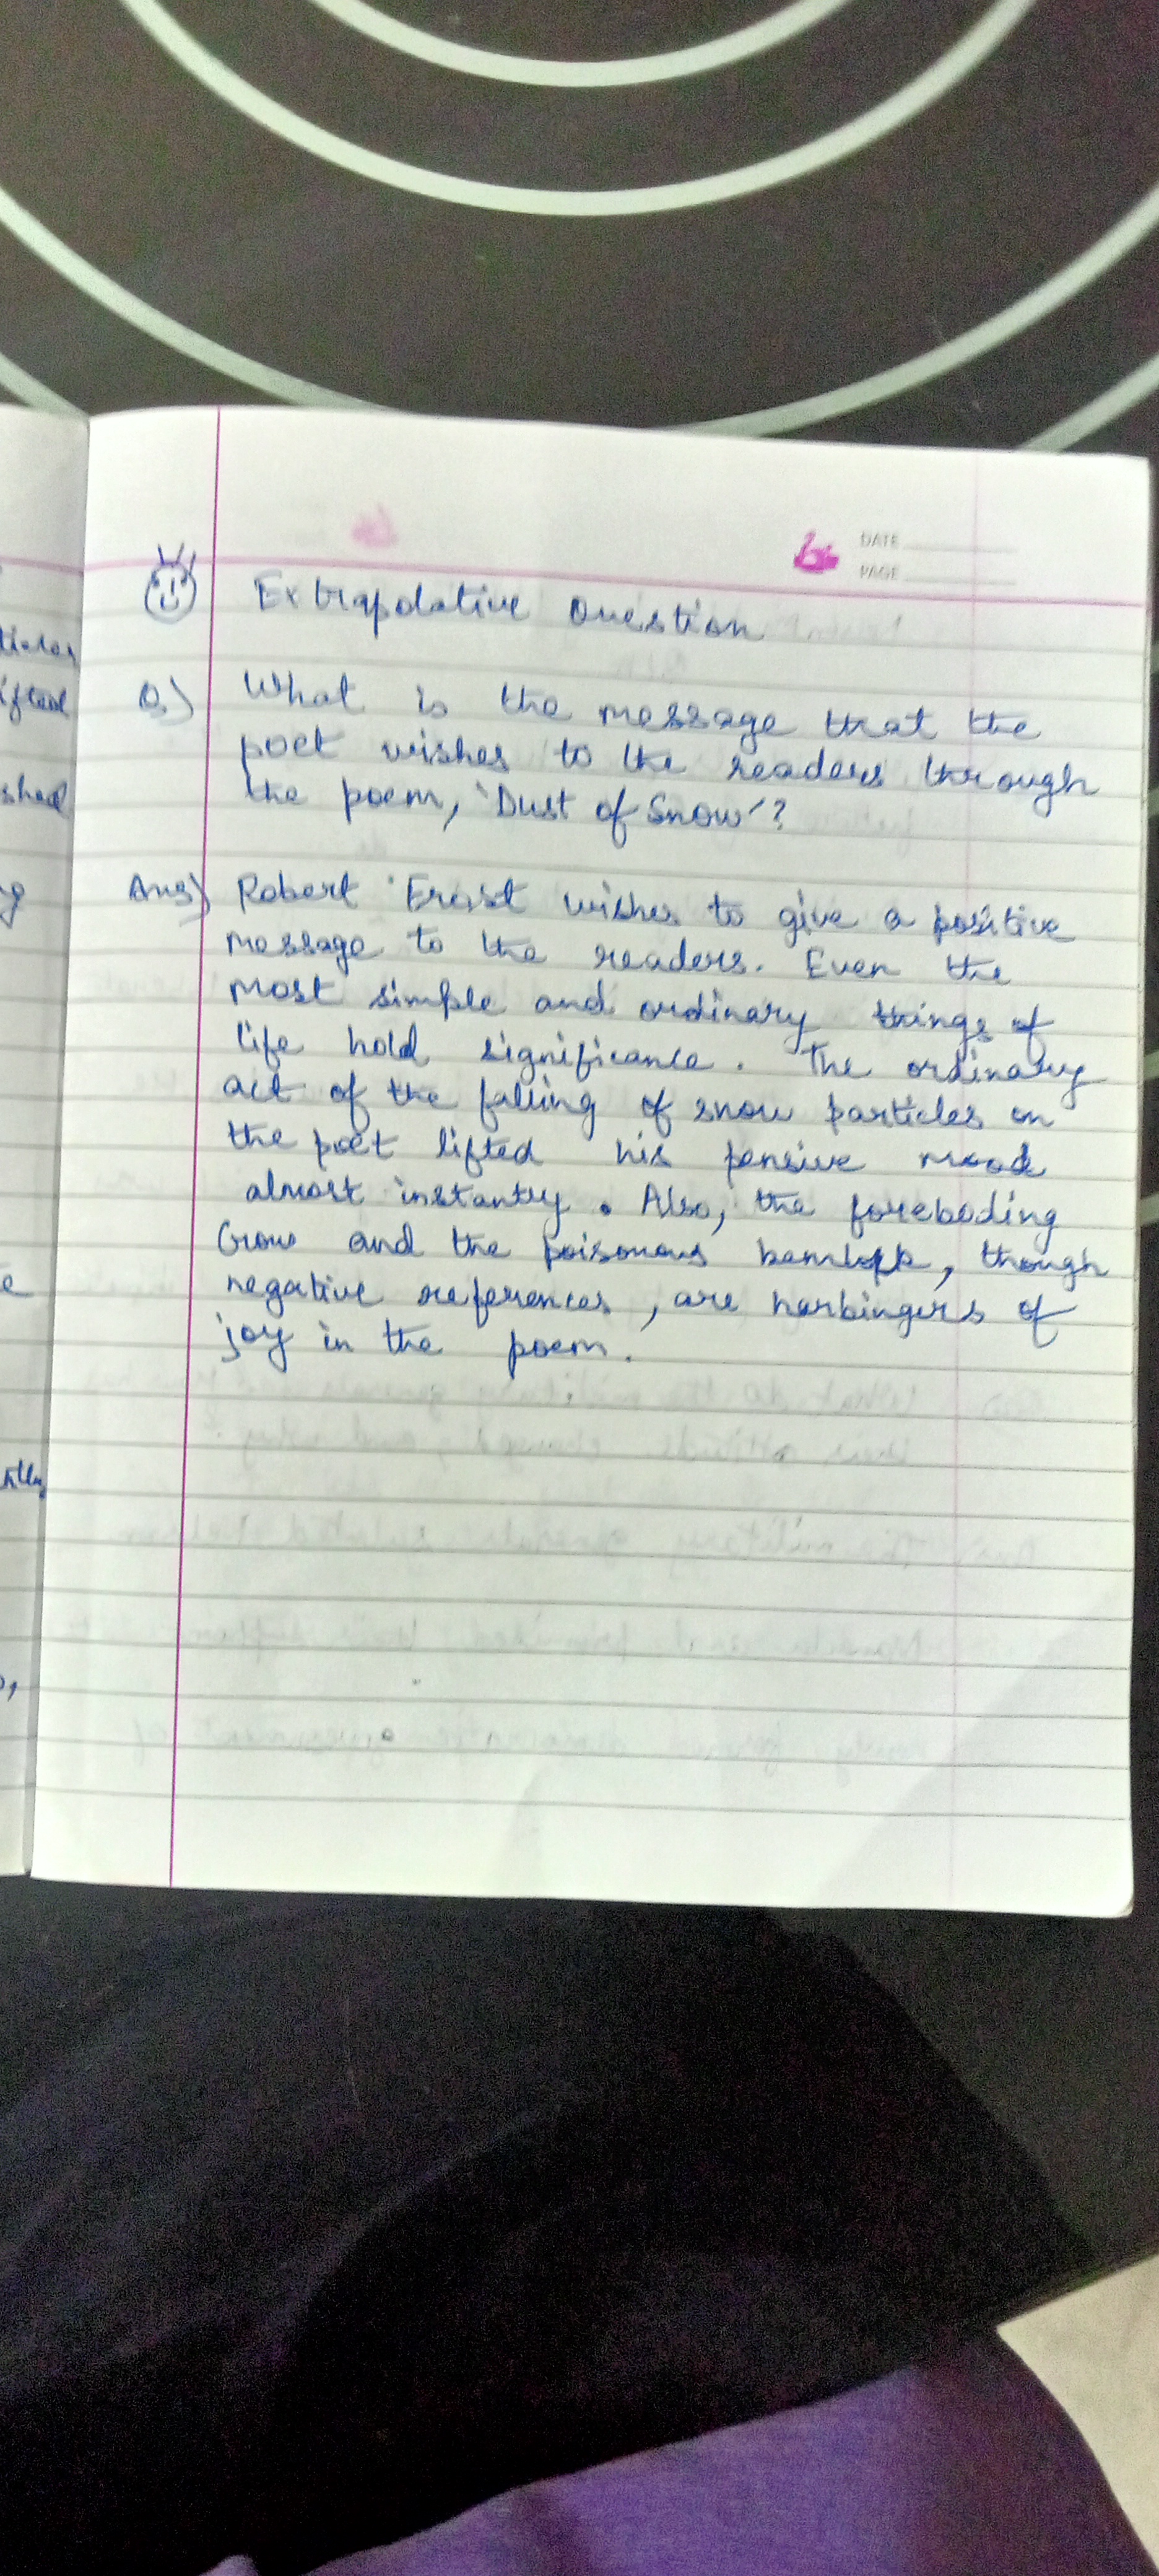 DATE
PAGE
Extrapolative Question
Q) What is the message that the
poet wishes to the readers through
the poem, 'Dust of Snow'?
Ans) Robert Frost wishes to give a positive
message to the readers. Even the
most simple and ordinary things of
life hold significance. The ordinary
act of the falling of snow particles on
the poet lifted his pensive mood
almost instantly. Also, the foreboding
Crow and the poisonous hemlock, though
negative references, are harbingers of
joy in the poem.